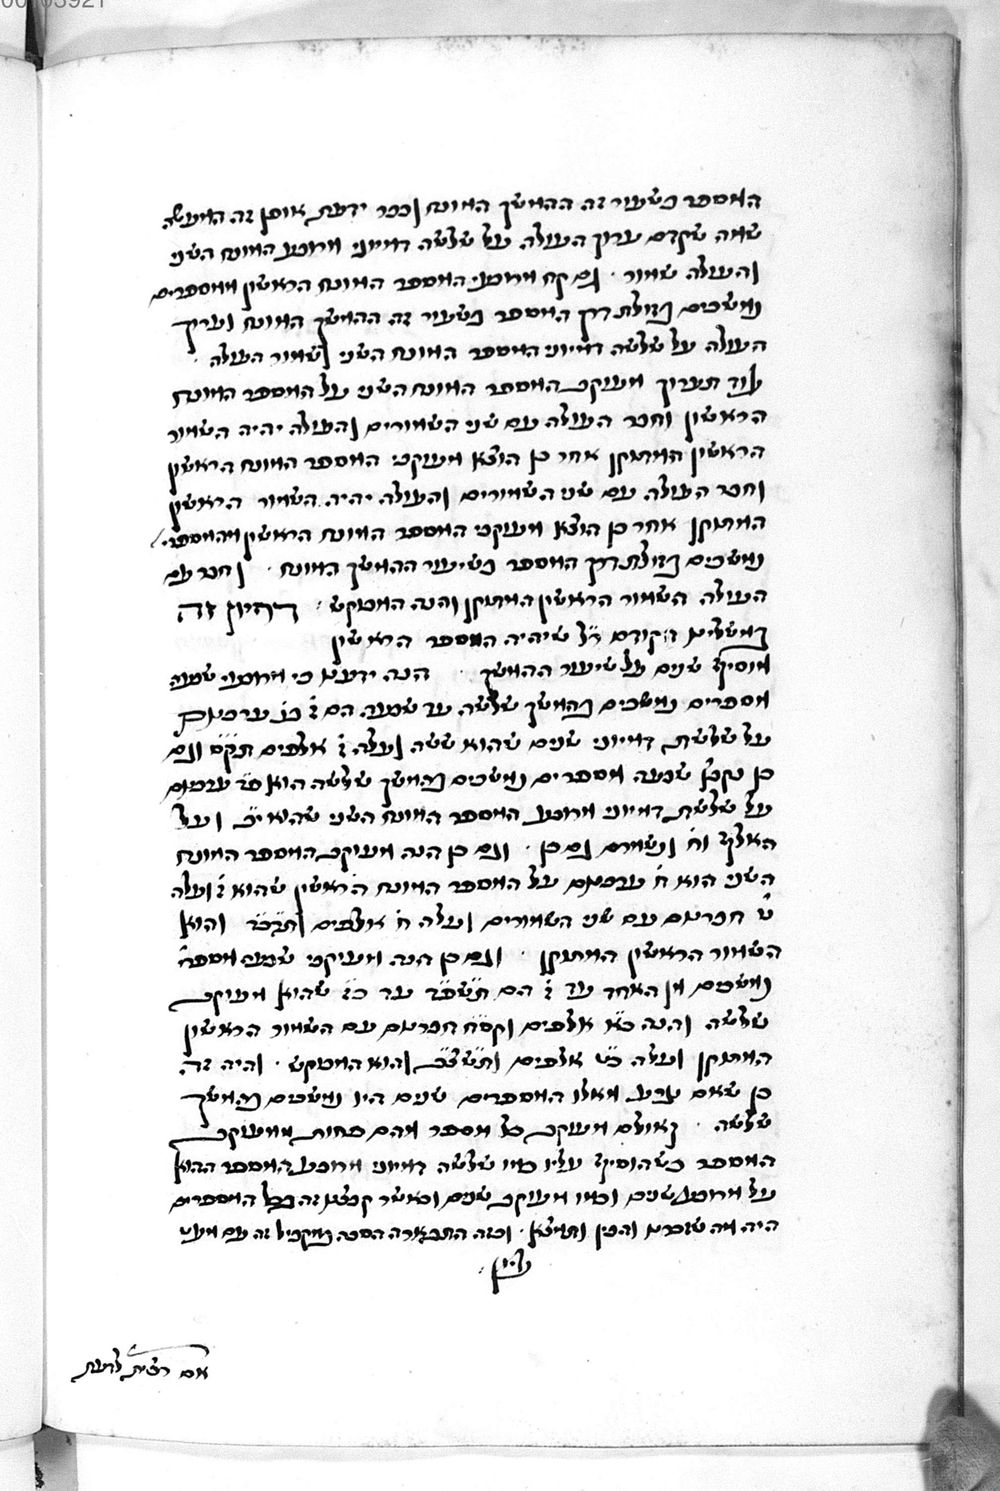 המספר כשעור זה ההמשך המונח וכבר ידעת אופן זה המעשה
שמה שקדם ערוך העולה על שלשה דמיוני מרובע המונח השני
והעולה שמור · גם קח מרובעי המספר המונח הראשון ומספרים
נמשכים בזולת דרך המספר כשעור זה ההמשך המונח וערוך
העולה על שלשה דמיוני המספר המונח השני ושמור העולה ·
עוד תערוך מעוקב המספר המונח השני על המספר המונח
הראשון וחבר העולה עם שני השמורים והעולה יהיה השמור
הראשון המתוקן אחר כן הוצא מעוקבי המספר המונח הראשון
וחבר העולה עם שני השמורים והעולה יהיה השמור הראשון
המתוקן אחר כן הוצא מעוקבי המספר המונח הראשון ומהמספרי'
נמשכים בזולת דרך המספר כשיעור ההמשך המונח · וחבר עם
העולה השמור הראשון המתוקן והנה המבוקש · דמיון זה
במשלינו הקודם ר"ל שיהיה המספר הראשון
מוסיף שנים על שיעור ההמשך · הנה ידענו כי מרובעי שמנה
מספרים נמשכים בהמשך שלשה עד שמנה הם
על שלשת דמיוני שנים שהוא ששה ועלה ג' אלפים תק"ס וגם
כן נקבץ שבעה מספרים נמשכים בהמשך שלשה הוא ערכנום
על שלשת דמיוני מרובע המספר המונח השני שהוא י"ב ועלה
האלף וח' ונשמרם גם כן · וגם כן הנה מעוקב המספר המונח
השני הוא ח' ערכנום על המספר המונח הראשון שהוא ועלה
חברנום עם שני השמורים ועלה ח' אלפים והוא
השמור הראשון המתוקן · וגם כן הנה מעוקבי שמנה מספרי'
נמשכים מן האחד עד הם עד כ"ז שהוא מעוקב
שלשה והנה כ"א אלפים וקס"ח חברנום עם השמור הראשון
המתוקן ועלה כ"ט אלפים והוא המבוקש · והיה זה
כן שאם מאלו המספרים שנים היו נמשכים בהמשך
שלשה · ואולם מעוקב כל מספר מהם פחות ממעוקב
המספר כשהוסיף עליו כמו שלשה דמיוני מרובע המספר ההוא
על מרובע שנים וכמו מעוקב שנים וכאשר קבלנו זה בכל המספרים
היה מה שזכרנו והבין ותמצא · וכזה התבארה הסבה במקביל זה עם מעט
עיון ·
אם רצית לדעת